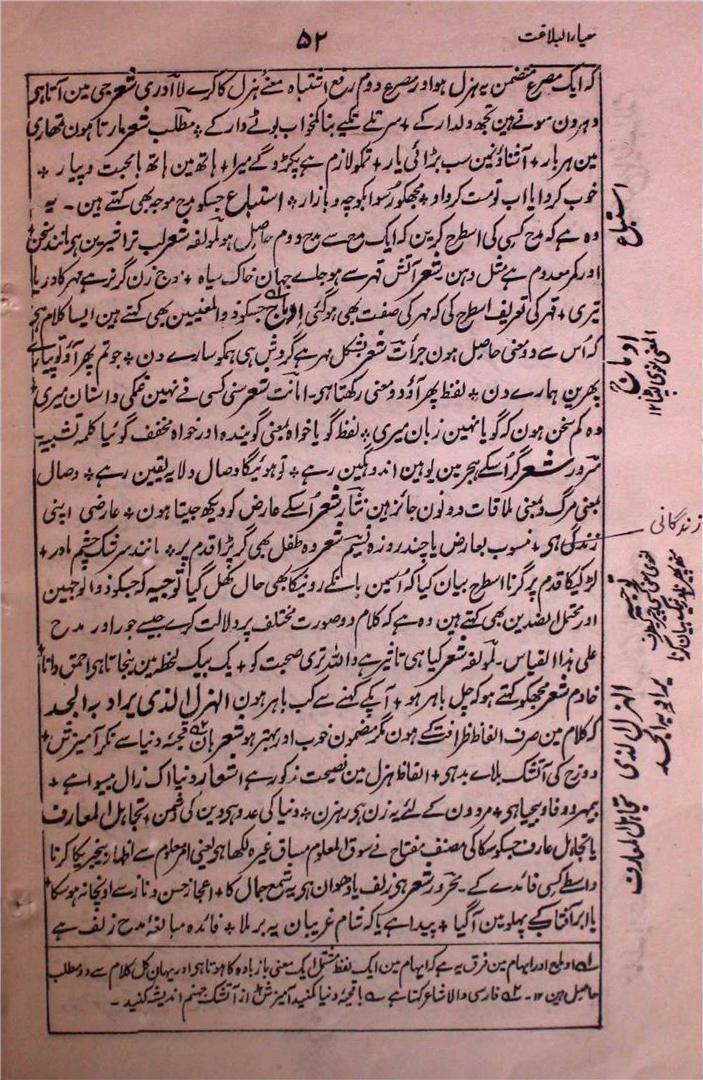 معیار البلاغت
۵۲
کہ ایک مصرع متضمن یہ ہزل ہو اور مصرع دوم رفع اشتباہ معنے ہزل کا کرے لا ادری شعر جی مین آتا ہی
وہرون سوتے ہین تجھ ولدار کے ٭ سر تلے تکیے بنا کمخواب بوٹے دار کے ٭ مطلب شعر مارتا ہون تمھاری
مین ہر بار ٭ آشناؤنمین سب بڑائی یار ٭ تمکو لازم ہے پکڑو گے میرا ٭ ہاتھ مین ہاتھ با محبت و پیار ٭
خوب کروایا اب تو مت کرواو ٭ مجھکو رسوا بکوچہ و بازار ٭ استتباع جسکو مدح موجہ بھی کہتے ہین ۔ یہ
وہ ہے کہ مدح کسی کی اسطرح کرین کہ ایک مدح سے مدح دوم حاصل ہو لمولفہ شعر لب ترا شیرین ہی مانند سخن
اور کمر معدوم ہے مثل دہن شعر آتش قہر سے ہو جلے جہان خاک سیاہ ٭ موج زن گر نہ رہے مہر کا دریا
تیری ٭ قہر کی تعریف اسطرح کی کہ مہر کی صفت بھی ہوگئی ادماج جسکو ذو المعنیین بھی کہتے ہین ایسا کلام ہے
کہ اُس سے دو معنی حاصل ہون جرأت شعر بشکل مہر ہے گردش ہی ہمکو سارے دن ٭ جو تم پھر آؤ تو پیارے
پھرین ہمارے دن ٭ لفظ پھر آؤ دو معنی رکھتا ہی ۔ امانت شعر سنی کسی نے نہین غمکی داستان میری
وہ کم سخن ہون کہ گویا نہین زبان میری ٭ لفظ گویا خواہ بمعنی گویندہ اور خواہ مخفف گوئیا کلمہ تشبیہ
سرور شعر گر اسکے ہجر مین یوہین اندوہگین رہے ٭ تو ہوئیگا وصال دلا یہ یقین رہے ٭ وصال
بمعنی مرگ و بمعنی ملاقات دونون جائز ہین نثار شعر اسکے عارض کو دیکھ جیتا ہون ٭ عارضی اپنی
زندگی ہی ٭ منسوب بعارض یا چند روزہ نسیم شعر وہ طفل بھی گر پڑا قدم پر ٭ مانند سرشک چشم مادر ٭
لڑکیکا قدم پر گرنا اسطرح بیان کیا کہ اسمین ماںکے رونیکا بھی حال کھل گیا توجیہ کہ جسکو ذو الوجہین
اور محتمل الضدین بھی کہتے ہین وہ ہے کہ کلام دو صورت مختلف پر دلالت کرے جیسے ہجو اور مدح
علی ہذا القیاس ۔ لمولفہ شعر کیا ہی تاثیر ہے واللہ تری صحبت کو ٭ یک بیک لحظہ مین بنجاتا ہی احمق دانا
خادم شعر مجھکو کہتے ہو کہ چل باہر ہو ٭ آپکے کہنے سے کب باہر ہون الہزل الذی یراد بہ الجد
کہ کلام مین صرف الفاظ ظرافت کے ہون مگر مضمون خوب اور بہتر ہو شعر ہان قحبۂ دنیا سے نکر آمیزش ٭
دوزخ کی آتشک بلاے بد ہی ٭ الفاظ ہزل مین نصیحت مذکور ہے اشعار دنیا اک زال بیسوا ہے ٭
بیمہر و وفا و بیحیا ہی ٭ مردون کے لئے یہ زن ہی رہزن ٭ دنیا کی عدو ہی دین کی دشمن ٭ تجاہل المعارف
یا تجاہل عارف جسکو سکاکی مصنف مفتاح نے سوق المعلوم مساق غیرہ لکھا ہی یعنی امر معلوم سے اظہار بیخبریکا کرنا
واسطے کسی فائدے کے ۔ بحر و شعر ہی زلف یا دھوان ہی یہ شمع جمال کا ٭ اعجاز حسن و ناز سے اونچا نہ ہو سکا
یا ابر آفتاب کے پہلو مین آگیا ٭ پیدا ہے یا کہ شام غریبان یہ برملا ٭ فائدہ مبالغۂ مدح زلف ہے
۱ے ادماج اور ایہام مین فرق یہ ہے کہ ایہام مین ایک لفظ مشتمل ایک معنی یا زیادہ کا ہوتا ہی اور یہان کل کلام سے دو مطلب
حاصل ہین ۱۲ ۔ ۲ے فارسی والا شاعر کہتا ہے ے با قحبۂ دنیا مکنید آمیزش ٭ از آتشک جہنم اندیشہ کنید ۔
استتباع
ادماج
۱۲
زندگانی
توجیہ
الہزل الذی
یراد بہ الجد
تجاہل المعارف